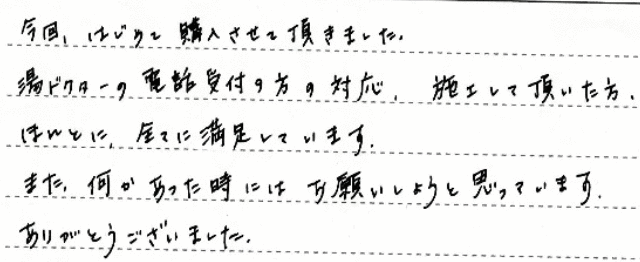 今回、はじめて購入させて頂きました。
湯ドクターの電話受付の方の対応、施工して頂いた方、
ほんとに、全てに満足しています。
また、何かあった時にはお願いしようと思っています。
ありがとうございました。